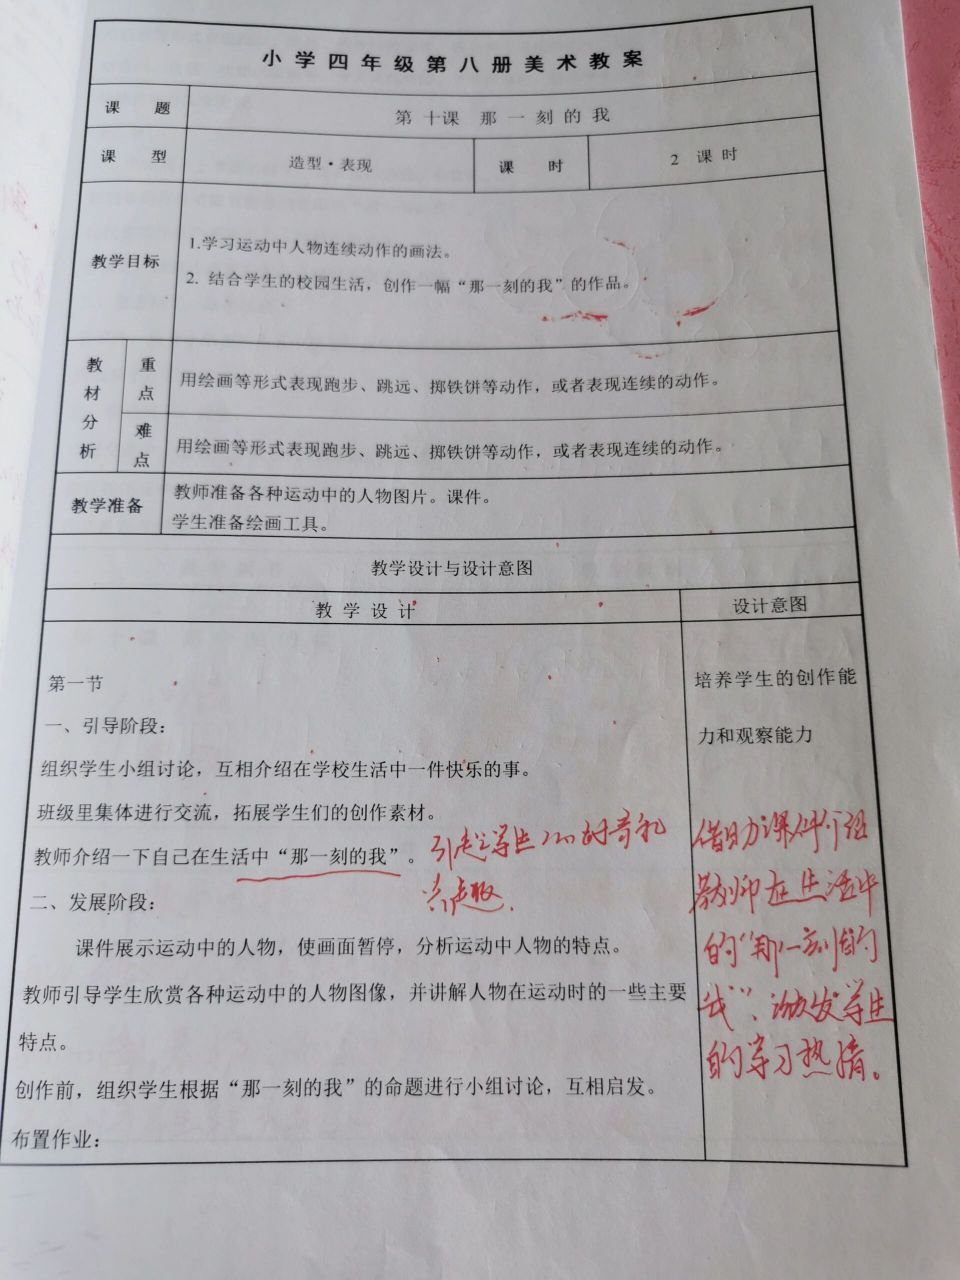 小学四年级第八册美术教案
课 题 第十课 那一刻的我
课 型 造型·表现 课 时 2 课时
教学目标
1.学习运动中人物连续动作的画法。
2. 结合学生的校园生活，创作一幅“那一刻的我”的作品。
教材分析
重点 用绘画等形式表现跑步、跳远、掷铁饼等动作，或者表现连续的动作。
难点 用绘画等形式表现跑步、跳远、掷铁饼等动作，或者表现连续的动作。
教学准备
教师准备各种运动中的人物图片。课件。
学生准备绘画工具。
教学设计与设计意图
教 学 设 计 设计意图
第一节
一、引导阶段：
组织学生小组讨论，互相介绍在学校生活中一件快乐的事。
班级里集体进行交流，拓展学生们的创作素材。
教师介绍一下自己在生活中“那一刻的我”。
引起学生们的好奇和
兴趣.
二、发展阶段：
课件展示运动中的人物，使画面暂停，分析运动中人物的特点。
教师引导学生欣赏各种运动中的人物图像，并讲解人物在运动时的一些主要
特点。
创作前，组织学生根据“那一刻的我”的命题进行小组讨论，互相启发。
布置作业：
培养学生的创作能
力和观察能力
借助课件介绍
教师在生活中
的“那一刻的
我”，激发学生
的学习热情。